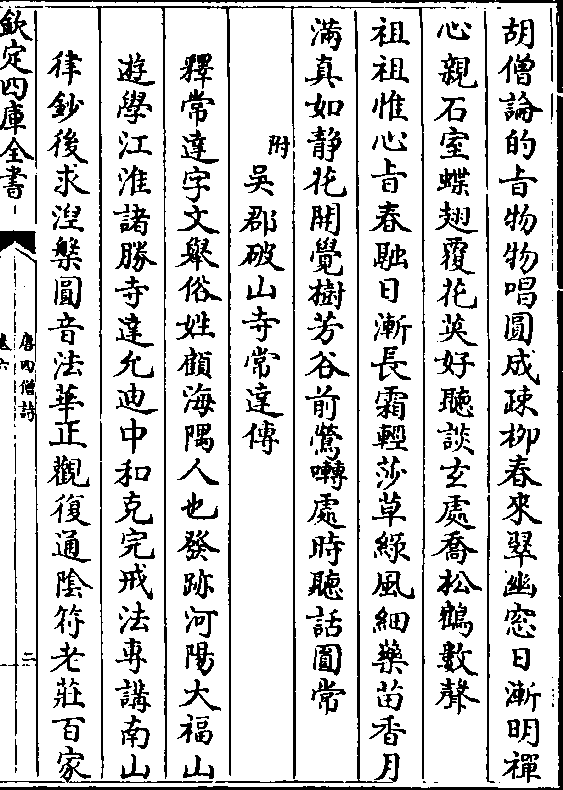 胡僧論的㫖物物唱圓成疎柳春來翠幽窓日漸明禪
心親石室蝶翅覆花英好聽談玄處喬松鶴數聲
祖祖惟心㫖春融日漸長霜輕莎草緑風細藥苗香月
滿真如静花開覺樹芳谷前鶯囀處時聽話圓常
附
吳郡破山寺常達傳
釋常達字文舉俗姓顧海隅人也發跡河陽大福山
遊學江淮諸勝寺達允迪中和克完戒法専講南山
律鈔後求涅槃圓音法華正觀復通陰符老莊百家
欽定四庫全書
唐四僧詩
卷六
二